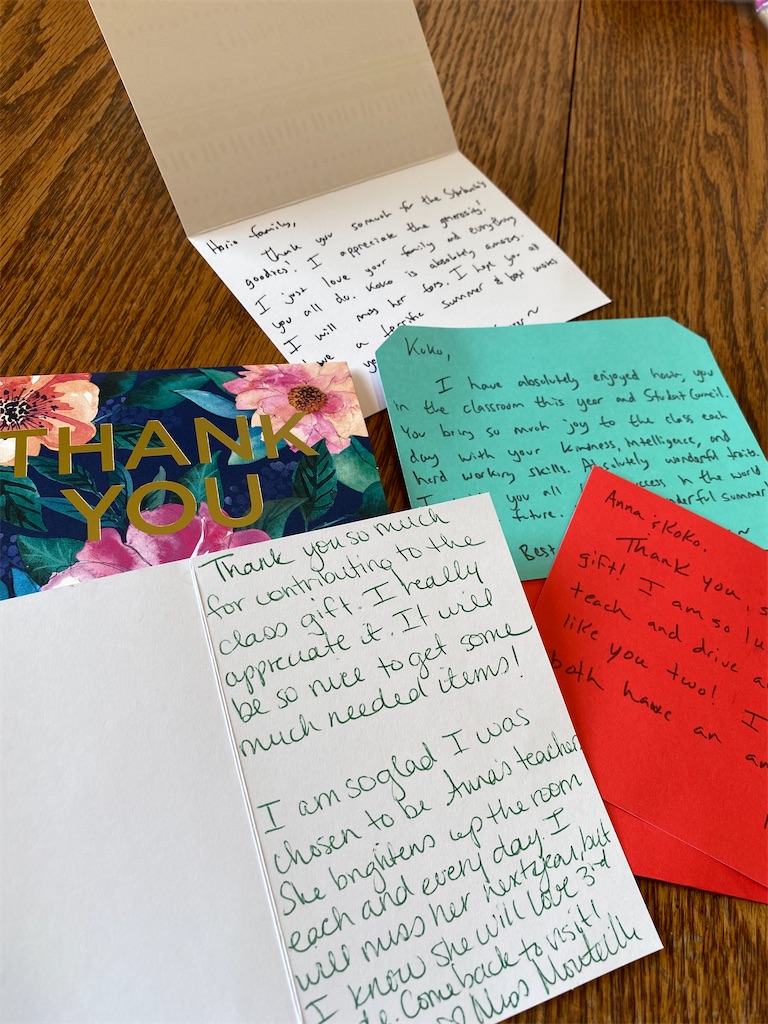 Horio family,
Thank you so much for the Starbucks
goodies! I appreciate the generosity!
I just love your family and everything
you all do. Koko is absolutely amazing.
I will miss her tons. I hope you all
have a terrific summer & best wishes
Koko,
I have absolutely enjoyed having you
in the classroom this year and Student Council.
You bring so much joy to the class each
day with your kindness, intelligence, and
hard working skills. Absolutely wonderful traits.
I you all success in the world
future. wonderful summer
Best
THANK
YOU
Anna & Koko.
Thank you, s
gift! I am so lu
teach and drive a
like you two! I
both have an am
Thank you so much
for contributing to the
class gift. I really
appreciate it. It will
be so nice to get some
much needed items!
I am so glad I was
chosen to be Anna's teacher.
She brightens up the room
each and every day. I
will miss her next year, but
I know she will love 3rd
Come back to visit!
♡ Miss